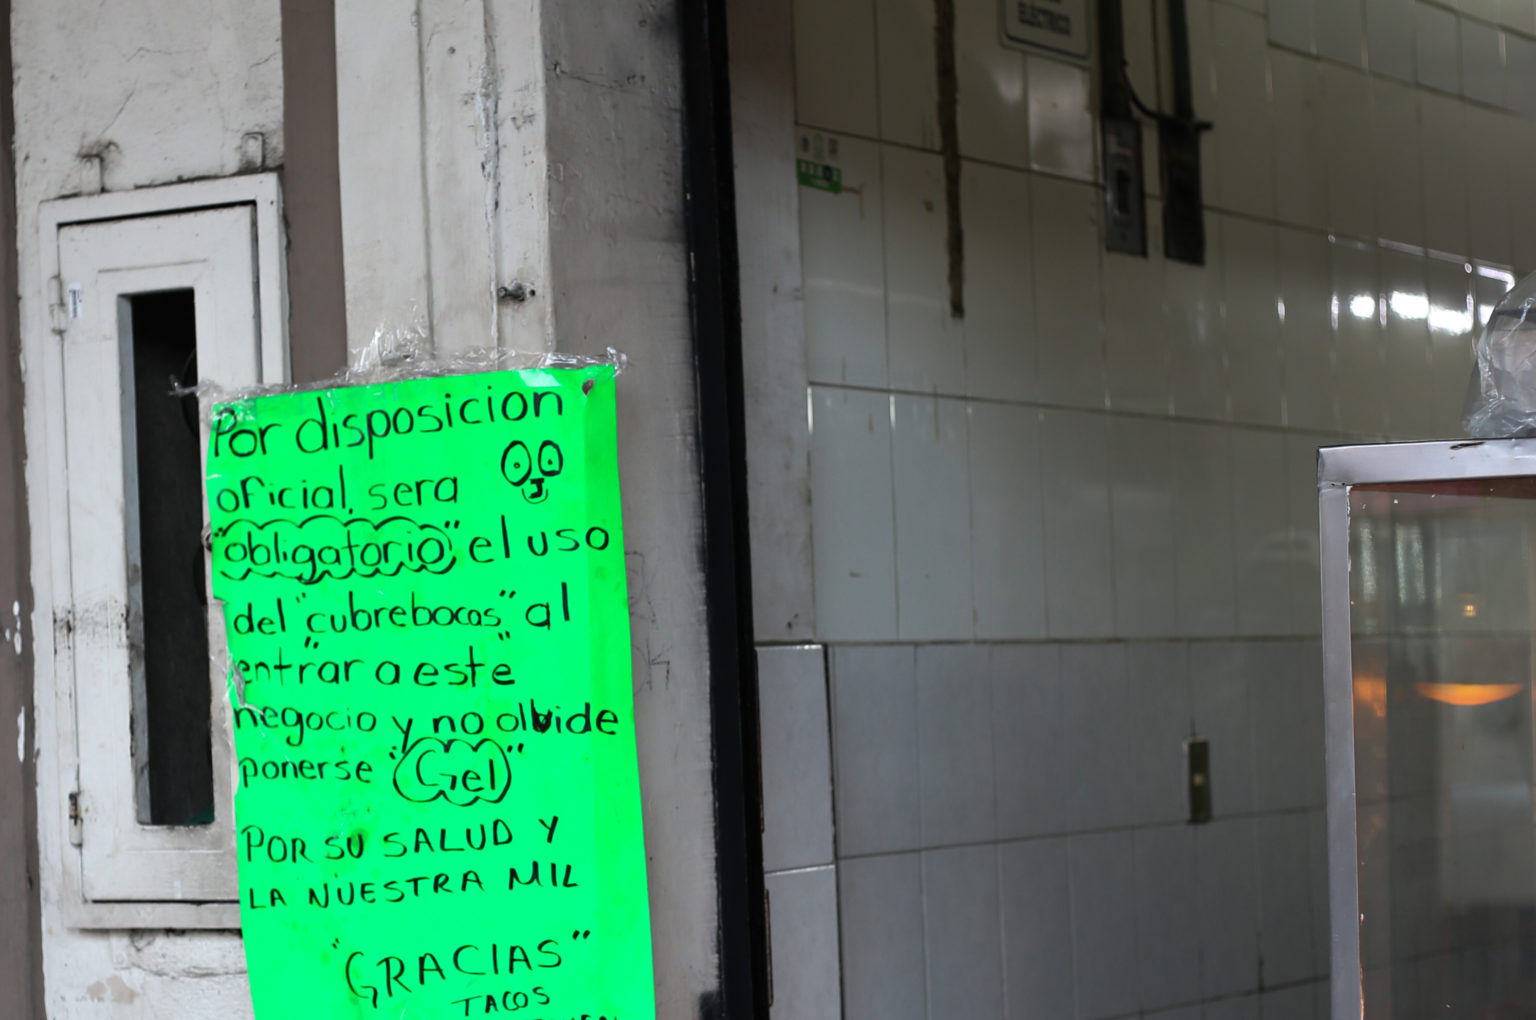 ELÉCTRICO
Por disposicion
oficial, sera
"obligatorio" el uso
del "cubrebocas" al
"entrar a este"
negocio y no olvide
ponerse "Gel"
POR SU SALUD Y
LA NUESTRA MIL
"GRACIAS"
TACOS